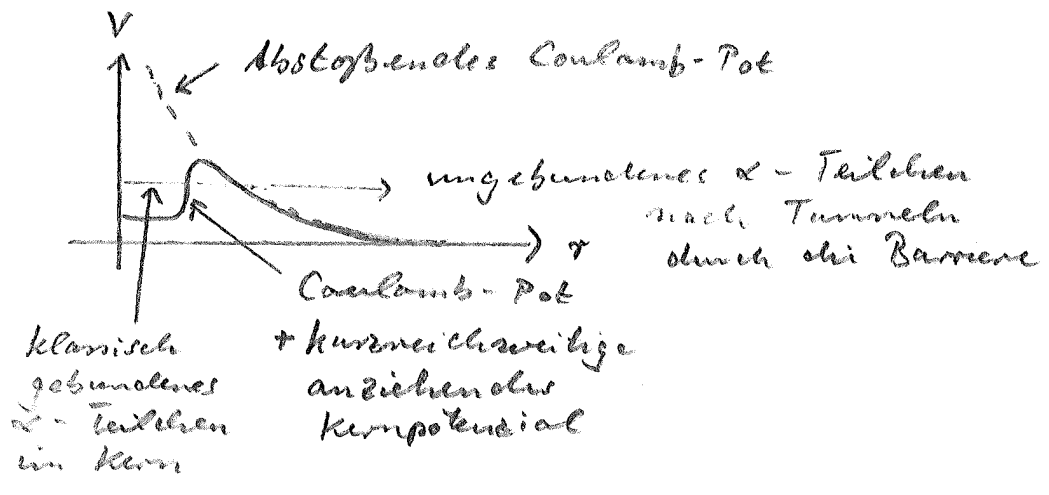 V
Abstoßendes Coulomb-Pot
ungebundenes α-Teilchen
nach Tunneln
durch die Barriere
r
Coulomb-Pot
+ kurzreichweitige
anziehendes
Kernpotenzial
klassisch
gebundenes
α-Teilchen
im Kern